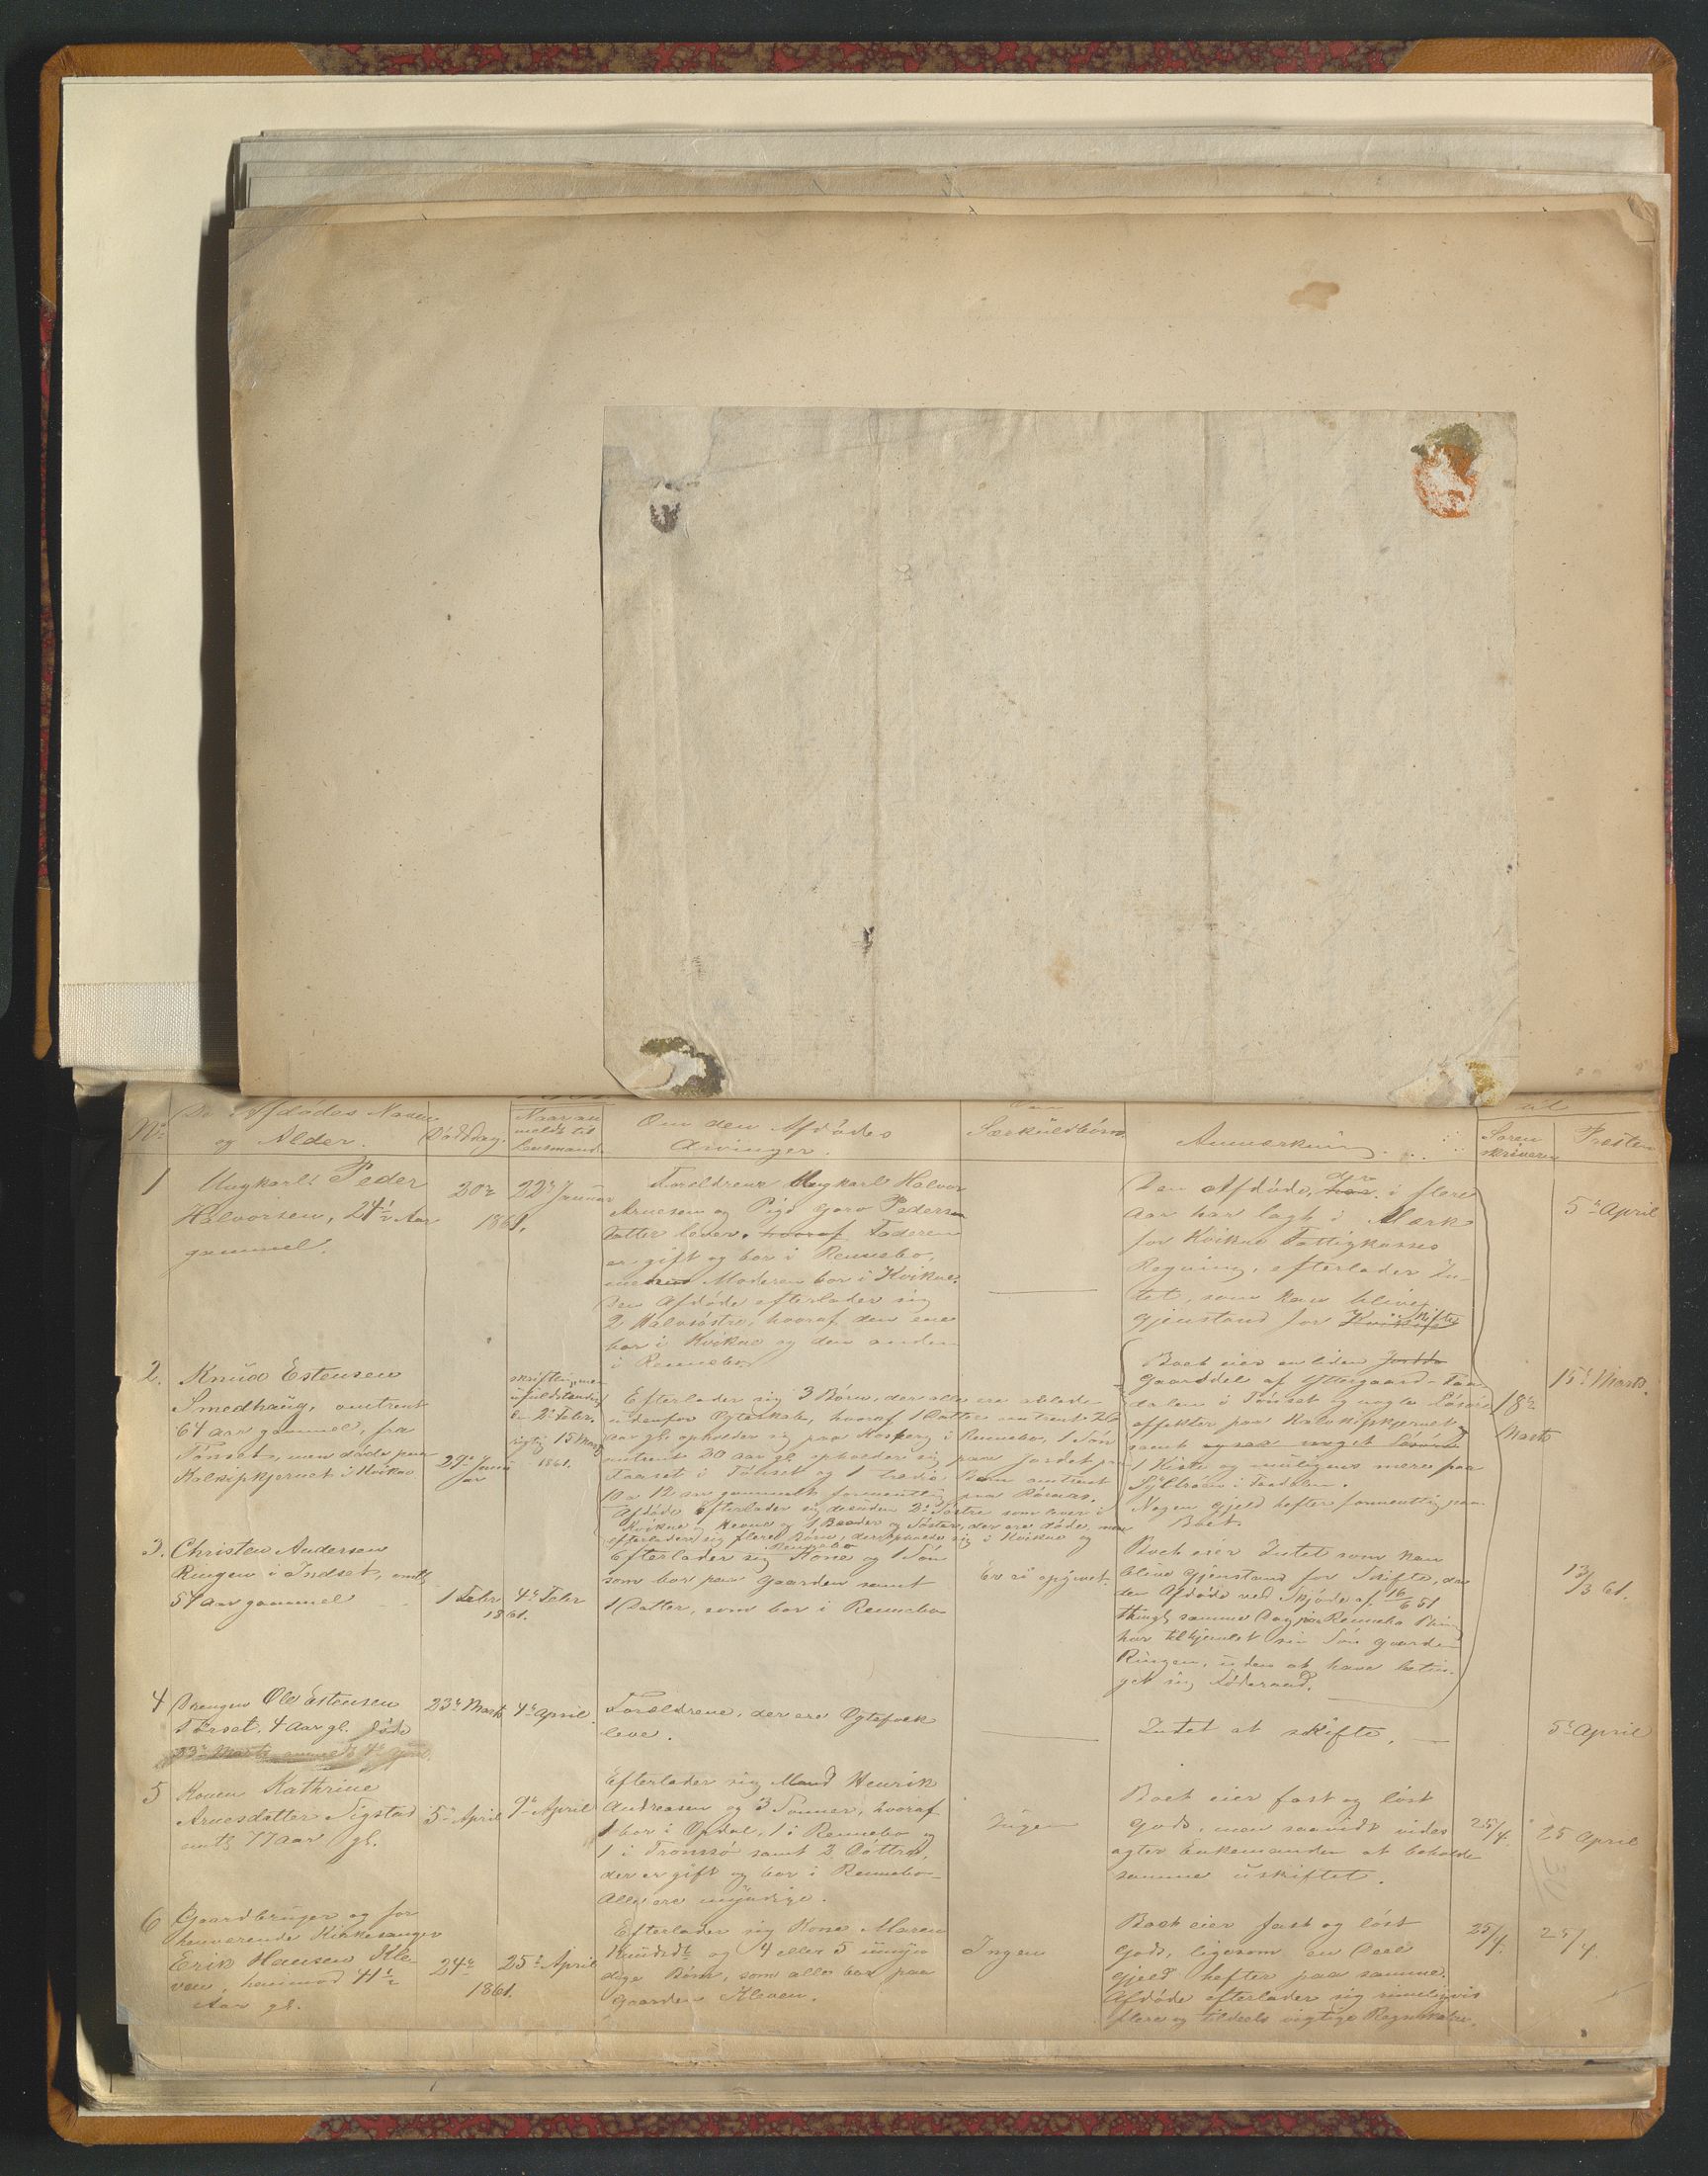 No
De Afdödes Navn
og Alder.
Dödsdag.
Naar an
meldt til
Lensmand.
Om den Afdödes
Arvinger.
Om
Særküldbörn.
Anmærkning.
til
Soren
skriveren
Præsten
1
Ungkarl Peder
Halvorsen, 24½ Aar
gammel.
20de
22de Januar
1861.
Forældrene Ungkarl Halvor
Arnesen og Pige Goro Peders
datter lever. hvoraf Faderen
er gift og bor i Rennebo,
medens Moderen bor i Kvikne.
Den Afdöde efterlader sig
2 Halvsöstre, hvoraf den ene
bor i Kvikne og den anden
i Rennebo.
Den Afdöde, der har i flere
Aar har lagt i Mærk
for Kvikne Fattigkasses
Regning, efterlader In-
tet, som kan blive
Gjenstand for Skifte
5te April
2.
Knüd Estensen
Smedhaüg, omtrent
64 aar gammel, fra
Tönset, men döde paa
Kalkipkjernet i Kvikne
27de Janu
ar
skriftlig men
üfuldstændig
den 2de Febr.
rigtig 15 Marts
1861.
Efterlader sig 3 Börn, der alle ere avlede
udenfor Ægteskab, hvoraf 1 Datter omtrent
aar gl. opholder sig paa Kosberg i Rennebo, 1 Sön
omtrent 30 aar gl. opholder sig paa Jordet
Faaset i Tönset og 1 tredie Barn omtrent
10 a 12 aar gammelt formentlig paa Röraas.
Afdöde Efterlader sig desuden 2 Söstre som lever i
Kvikne og Hevne og 1 Broder og Söster, der ere döde, men
efterlader sig flere Börn, der opholder sig i Kvikne og
Rennebo
Boet eier en liden Jordde
Gaarddel af Yttergaard-Faa
dalen i Tönset og nogle Lösöre
effekter paa Kalkipkjernet
samt ogsaa noget lösöre
1 Kiste og muligens mere paa
i Faadalen.
Nogen Gjeld hefter formentlig paa
Boet.
18de
Marts
15de Marts.
3.
Christen Andersen
Ringen i Indset, omtr
54 aar gammel
1 Febr
4de Febr
1861.
Efterlader sig Kone og 1 Sön
som bor paa Gaarden samt
1 Datter, som bor i Rennebo
Er ei opgivet.
Boet eier Intet som kan
blive Gjenstand for Skifte, da
den Afdöde ved Skjöde af 16/6 51
thingl. samme Dag paa Rennebo Thing
har tilhjemlet sin Sön Gaarden
Ringen, üden at have betin-
get sig Föderaad.
13/3 61.
4
Drengen Ole Estensen
Törset, 4 Aar gl. döde
23de Marts anmeldt 4de April.
23de Marts
4de April.
Forældrene, der ere Ægtefolk
leve.
Intet at skifte.
5te April
5
Konen Kathrine
Arnesdatter Sigstad
omtr 77 aar gl.
5te April
9de April
Efterlader sig Mand Henrik
Andreasen og 3 Sönner, hvoraf
1 bor i Opdal, 1 i Rennebo og
1 i Tromsö samt 2 Döttre,
der er gift og bor i Rennebo-
Alle ere myndige.
Ingen
Boet eier fast og löst
Gods, men saavidt vides
agter Enkemanden at beholde
samme üskiftet.
25/4.
25 April
6
Gaardbrüger og for
henværende Kirkesanger
Erik Hansen Kle
ven, henimod 41½
Aar gl.
24de
25de April
1861.
Efterlader sig Kone Maren
Knudsdtr og 4 eller 5 ümyn
dige Börn, som alle bor paa
Gaarden Kleven.
Ingen
Boet eier fast og löst
Gods, ligesom en Deel
Gjeld hefter paa samme.
Afdöde efterlader sig rimeligvis
flere og tildeels vigtige Regnskaber.
25/4.
25/4.